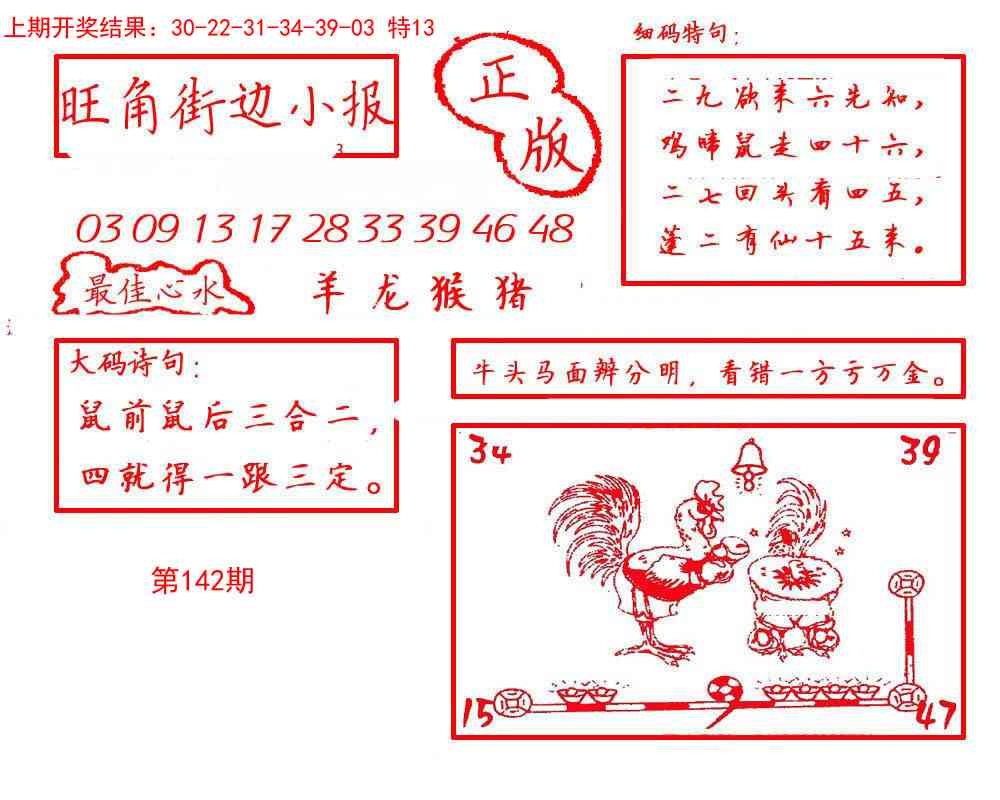 上期开奖结果：30-22-31-34-39-03 特13
细码特句：
正版
旺角街边小报
3
二九欲来六先知，
鸡啼鼠走四十六，
二七回头看四五，
蓬二有仙十五来。
03 09 13 17 28 33 39 46 48
最佳心水
羊龙猴猪
大码诗句：
鼠前鼠后三合二，
四就得一跟三定。
牛头马面辩分明，看错一方亏万金。
34
39
第142期
15
47